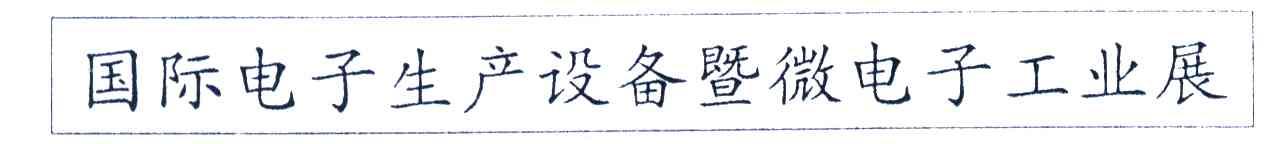 国际电子生产设备暨微电子工业展